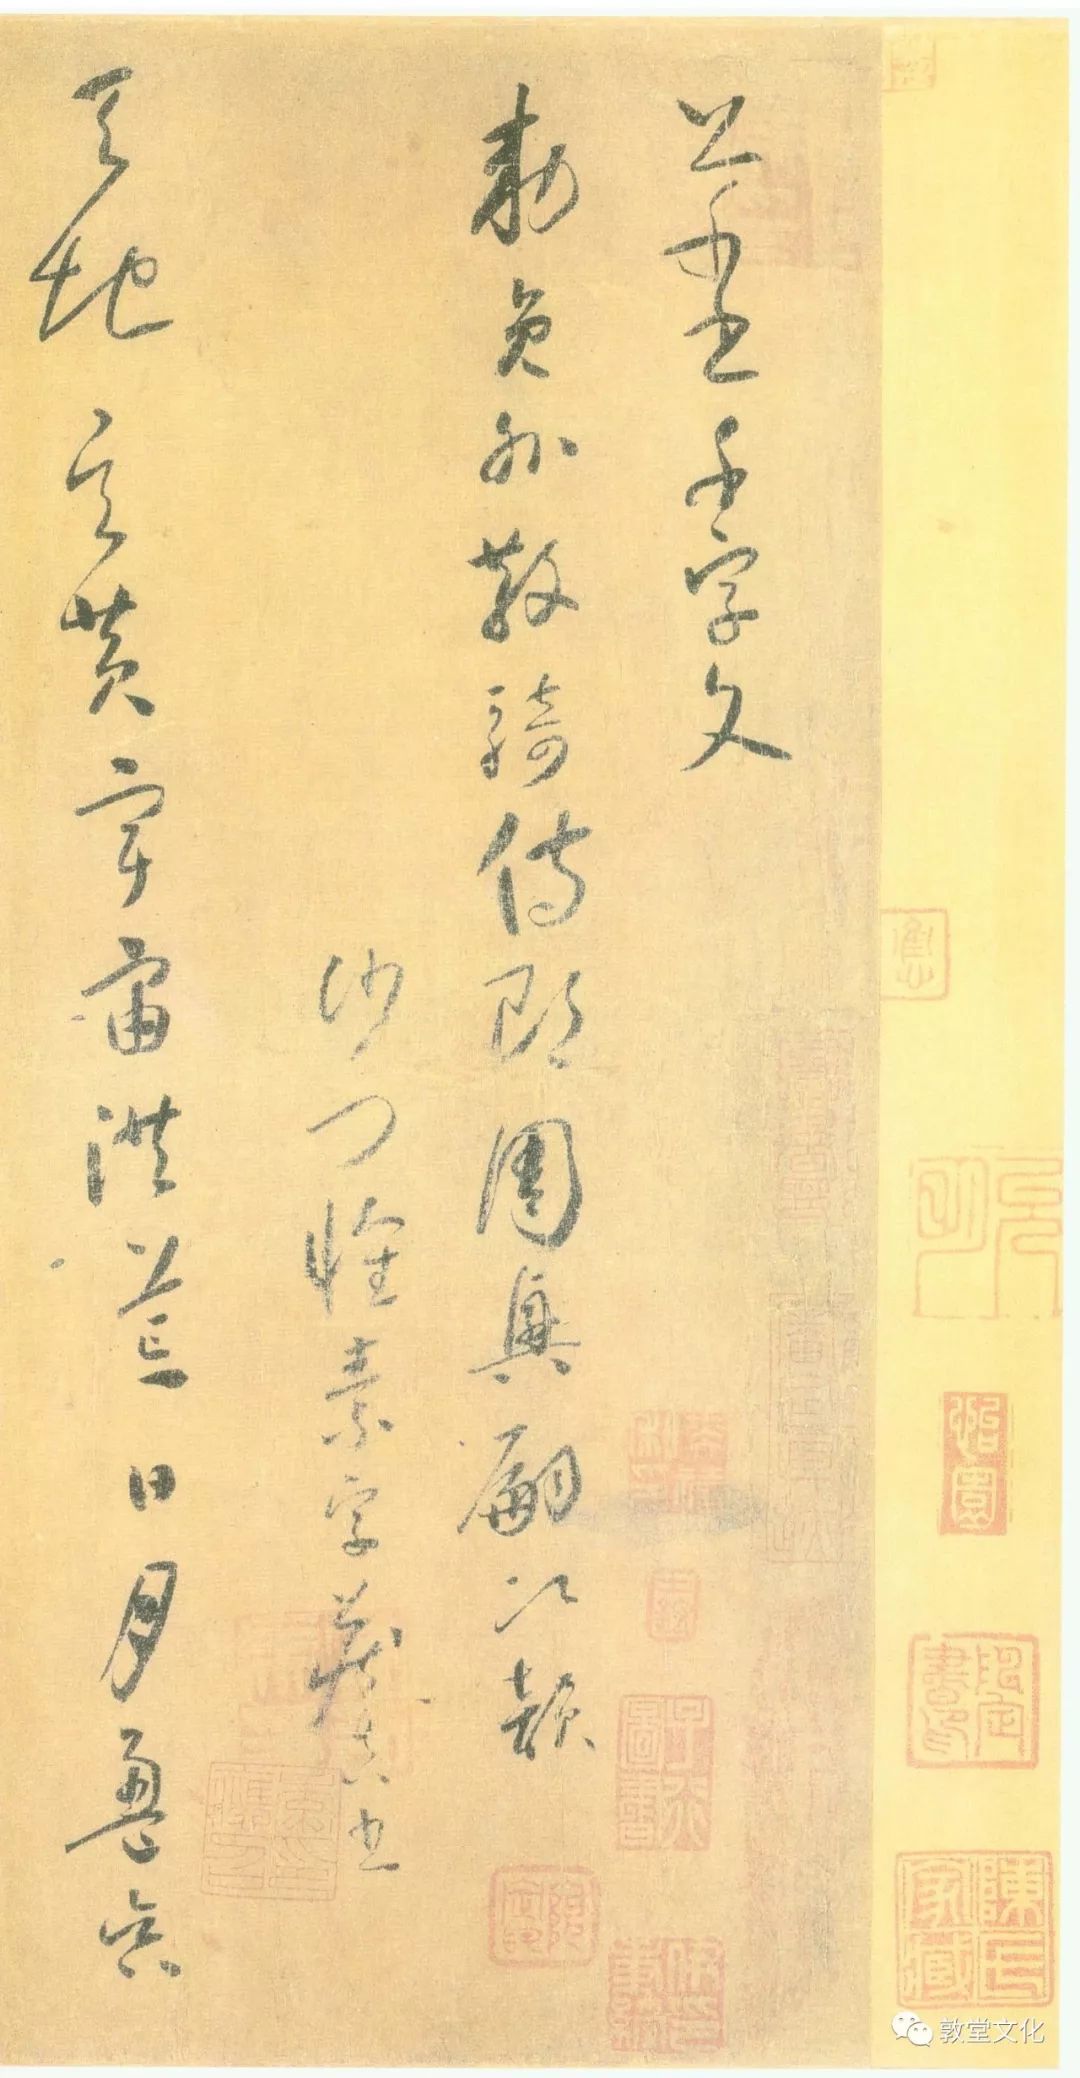 草書千字文
勅員外散騎侍郎周興嗣次韻
沙門懷素字藏真書
天地玄黃宇宙洪荒日月盈昃
陳氏家藏
敦堂文化